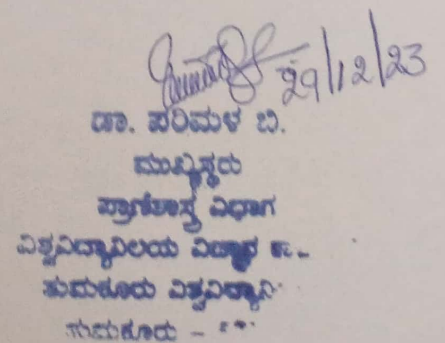 29/12/23
ಡಾ. ಪರಿಮಳ ಬಿ.
ಮುಖ್ಯಸ್ಥರು
ಪ್ರಾಣಿಶಾಸ್ತ್ರ ವಿಭಾಗ
ವಿಶ್ವವಿದ್ಯಾನಿಲಯ ವಿಜ್ಞಾನ ಕಾ
ತುಮಕೂರು ವಿಶ್ವವಿದ್ಯಾನಿ
ತುಮಕೂರು -